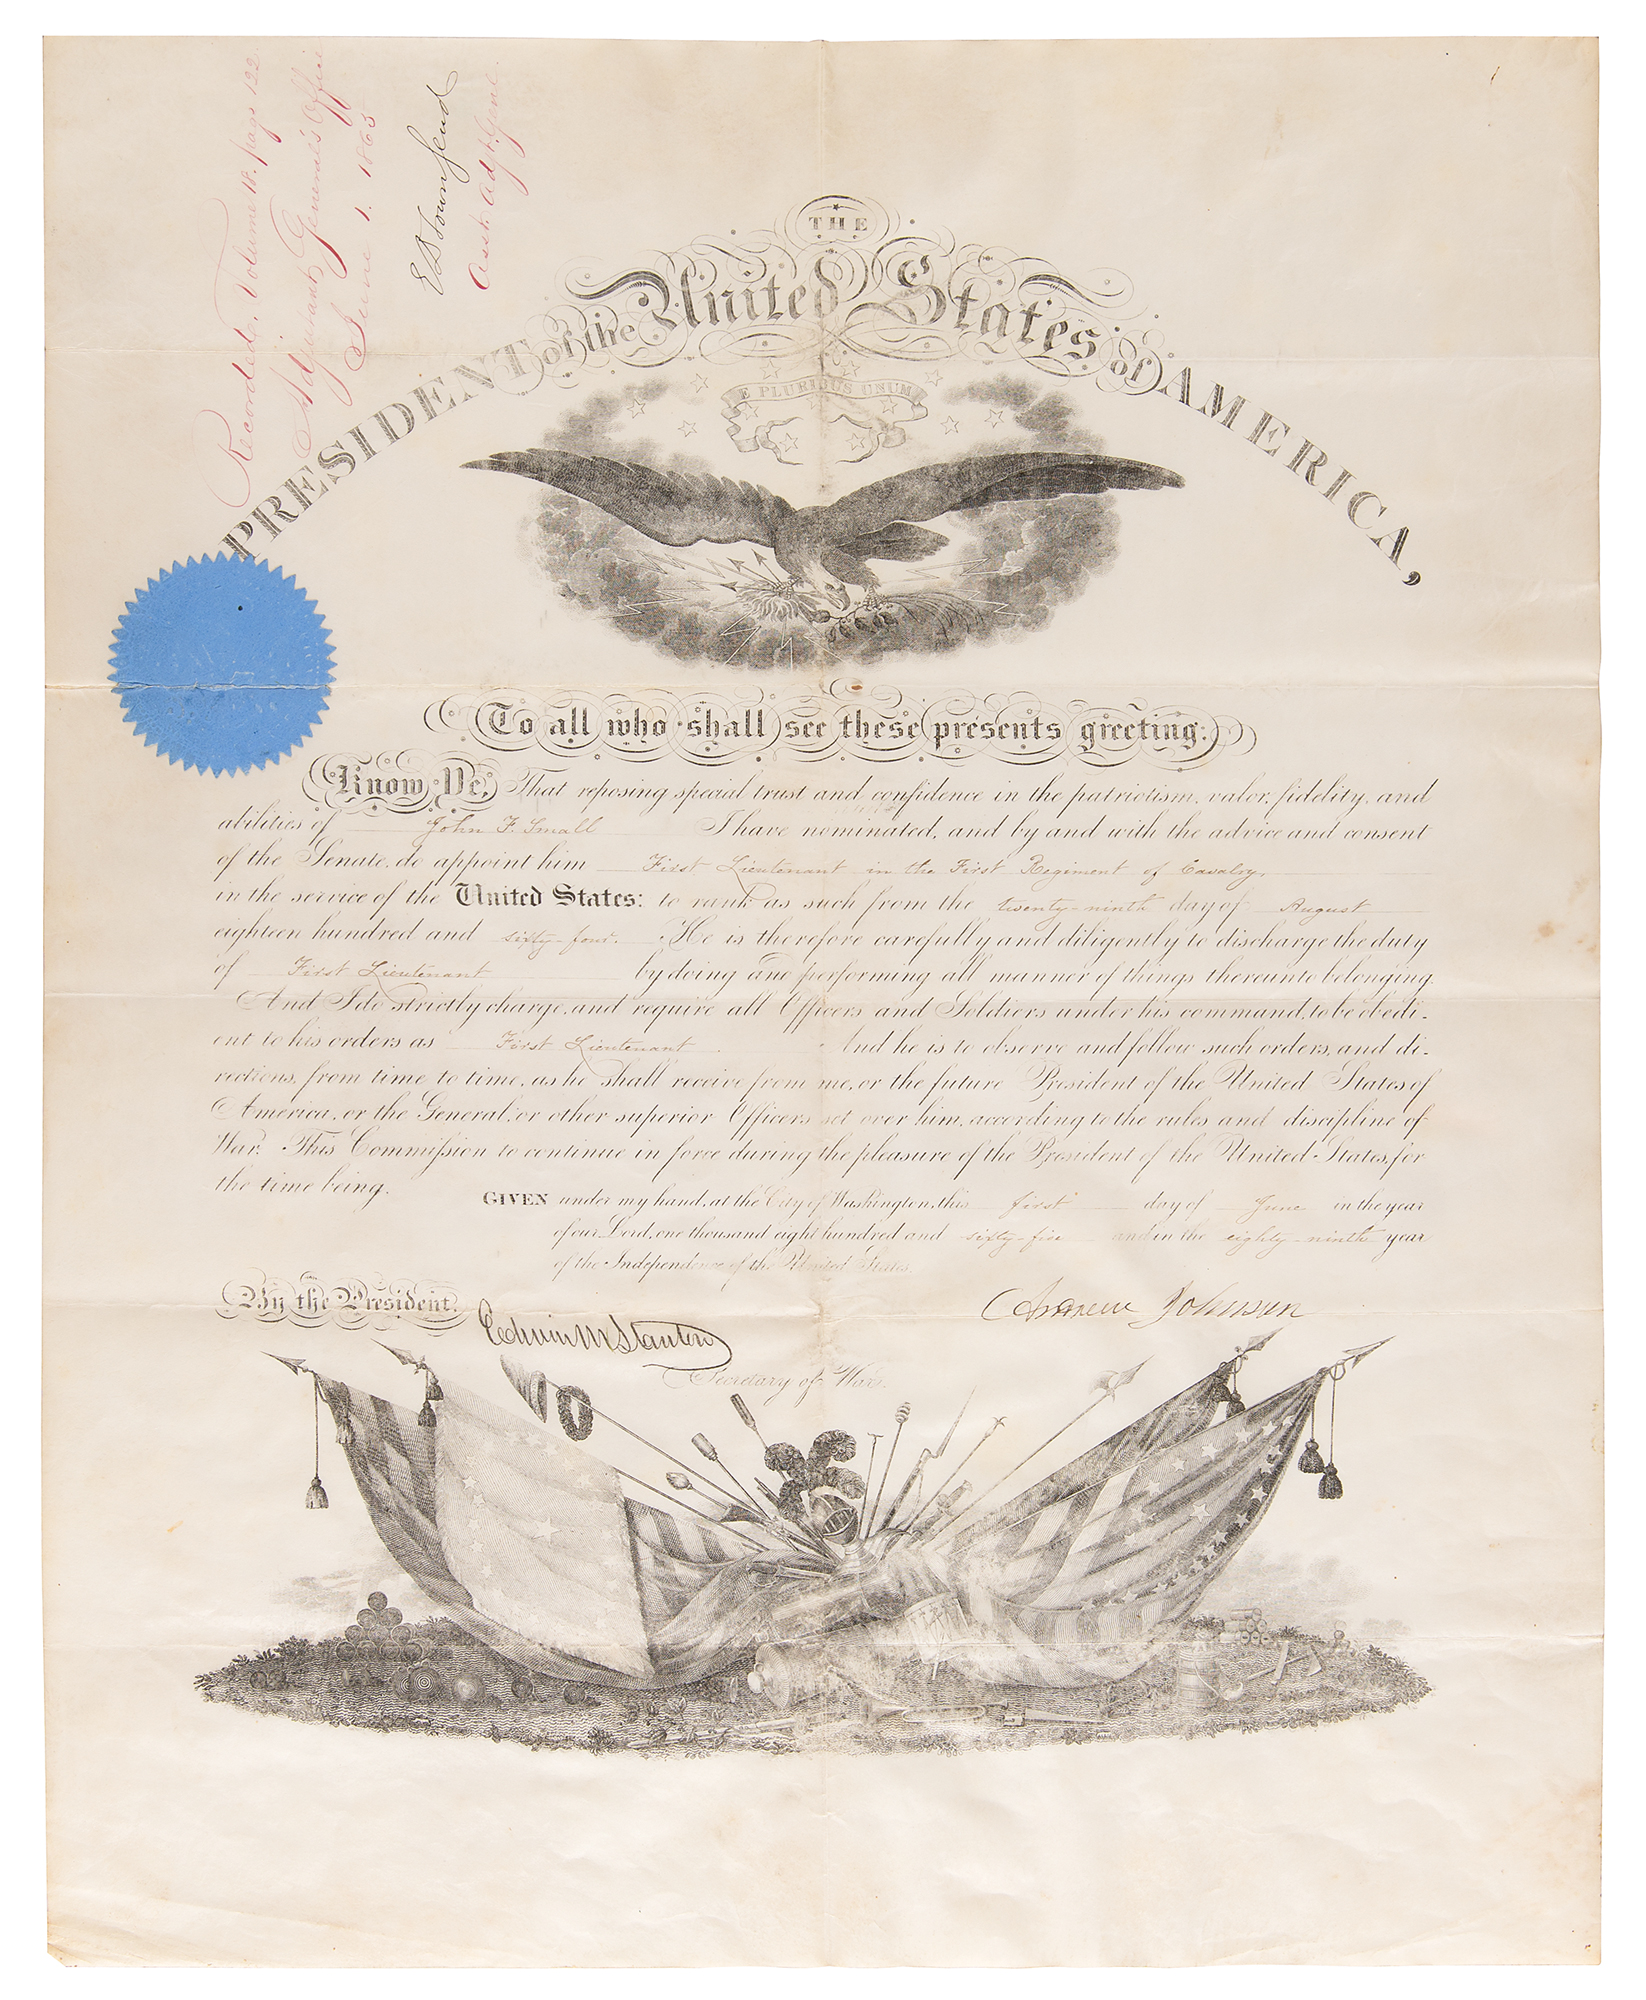 Recorded, Volume 18. page 122.
Adjutant General's Office
June 1. 1865
E D Townsend
Asst. Adjt. Genl.
THE
PRESIDENT of the United States of AMERICA,
E PLURIBUS UNUM
To all who shall see these presents greeting:
Know Ye, That reposing special trust and confidence in the patriotism, valor, fidelity, and
abilities of John F. Small I have nominated, and by and with the advice and consent
of the Senate, do appoint him First Lieutenant in the First Regiment of Cavalry,
in the service of the United States: to rank as such from the twenty-ninth day of August
eighteen hundred and sixty-four. He is therefore carefully and diligently to discharge the duty
of First Lieutenant by doing and performing all manner of things thereunto belonging.
And I do strictly charge, and require all Officers and Soldiers under his command, to be obedi-
ent to his orders as First Lieutenant And he is to observe and follow such orders, and di-
rections, from time to time, as he shall receive from me, or the future President of the United States of
America, or the General, or other superior Officers set over him, according to the rules and discipline of
War. This Commission to continue in force during the pleasure of the President of the United States, for
the time being.
GIVEN under my hand, at the City of Washington, this first day of June in the year
of our Lord, one thousand eight hundred and sixty-five and in the eighty-ninth year
of the Independence of the United States.
By the President,
Andrew Johnson
Edwin M Stanton
Secretary of War.